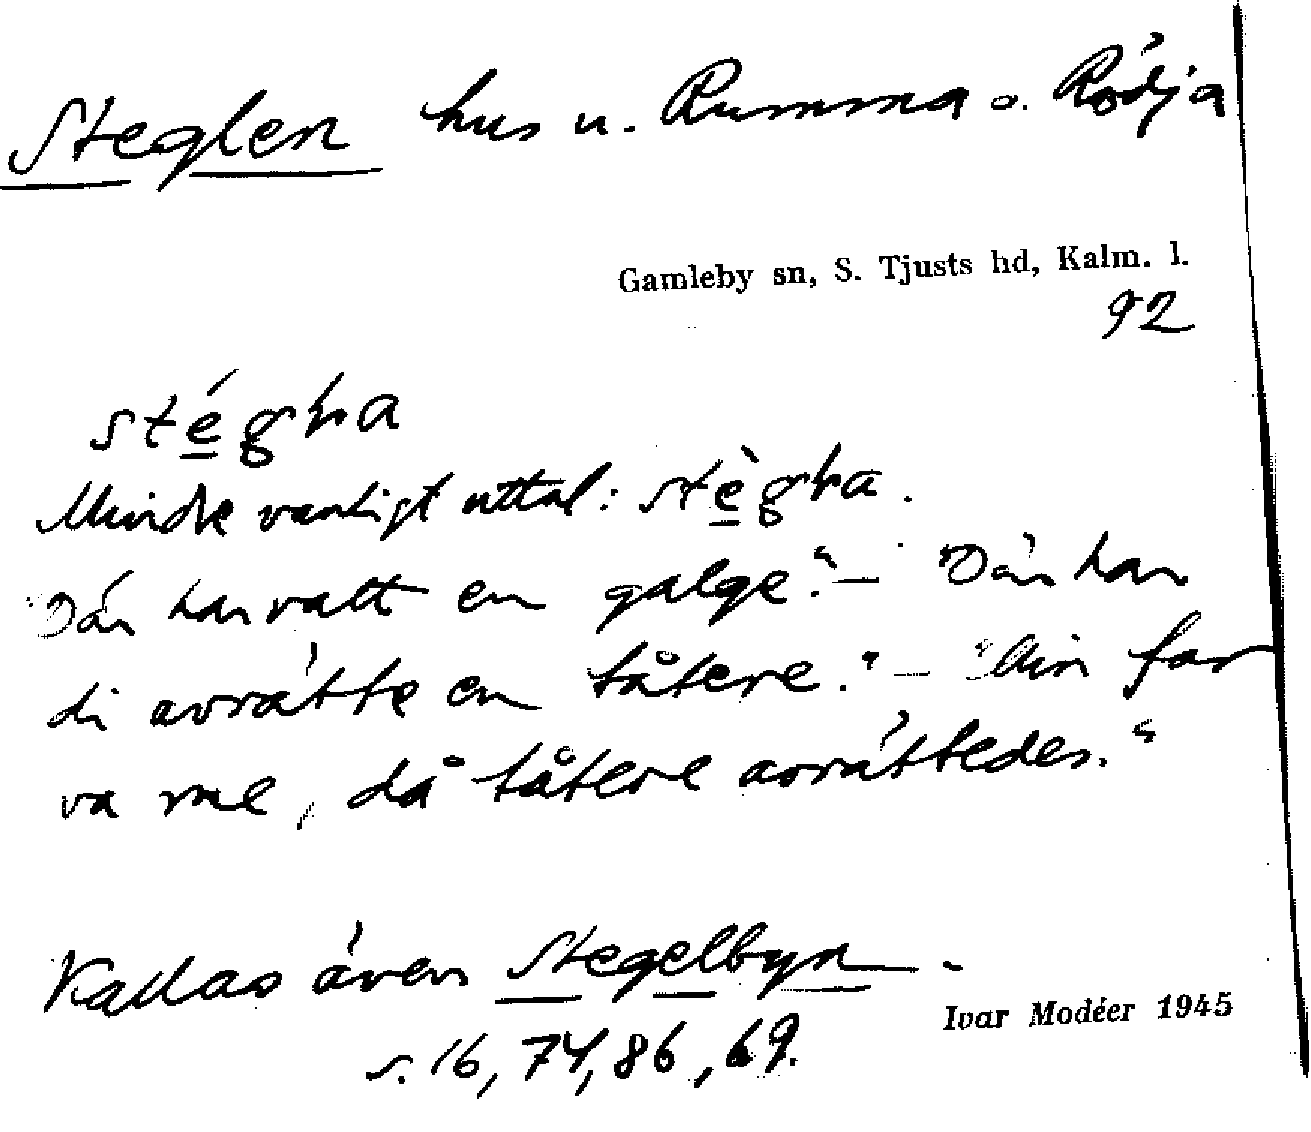 Steglen hus u. Rumma o. Rödja
Gamleby sn, S. Tjusts hd, Kalm. l.
92
stégla
Mindre vanligt uttal: stègla.
"Där har vatt en galge." – "Där har
di avrätte en tåtere." – "Min far
va me, då tåtere avrättedes."
Kallas även Stegelbyn.
s. 16, 74, 86, 69.
Ivar Modéer 1945